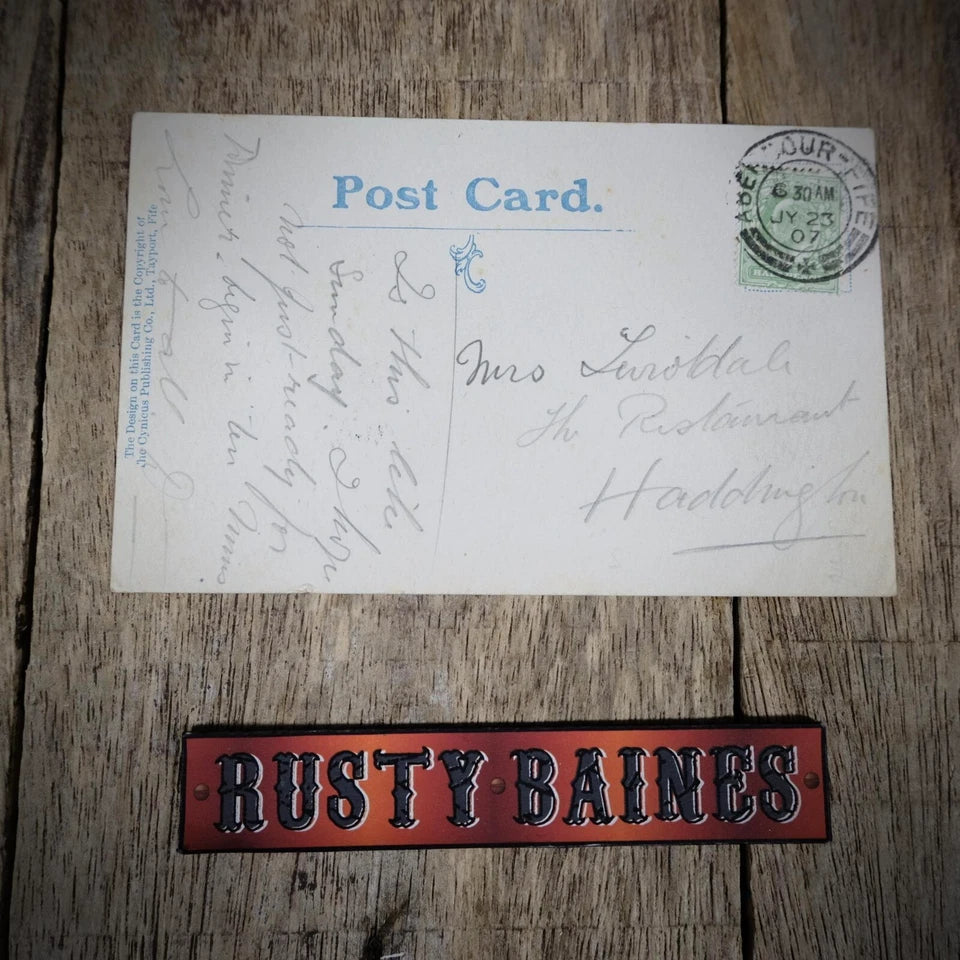 Post Card.
ABERDOUR-FIFE
6 30 AM
JY 23
07
Mrs
The Restaurant
Haddington
Is this like
Sunday? I hope
not just ready for
begin in
The Design on this Card is the Copyright of
he Cynicus Publishing Co., Ltd., Tayport, Fife
RUSTY BAINES